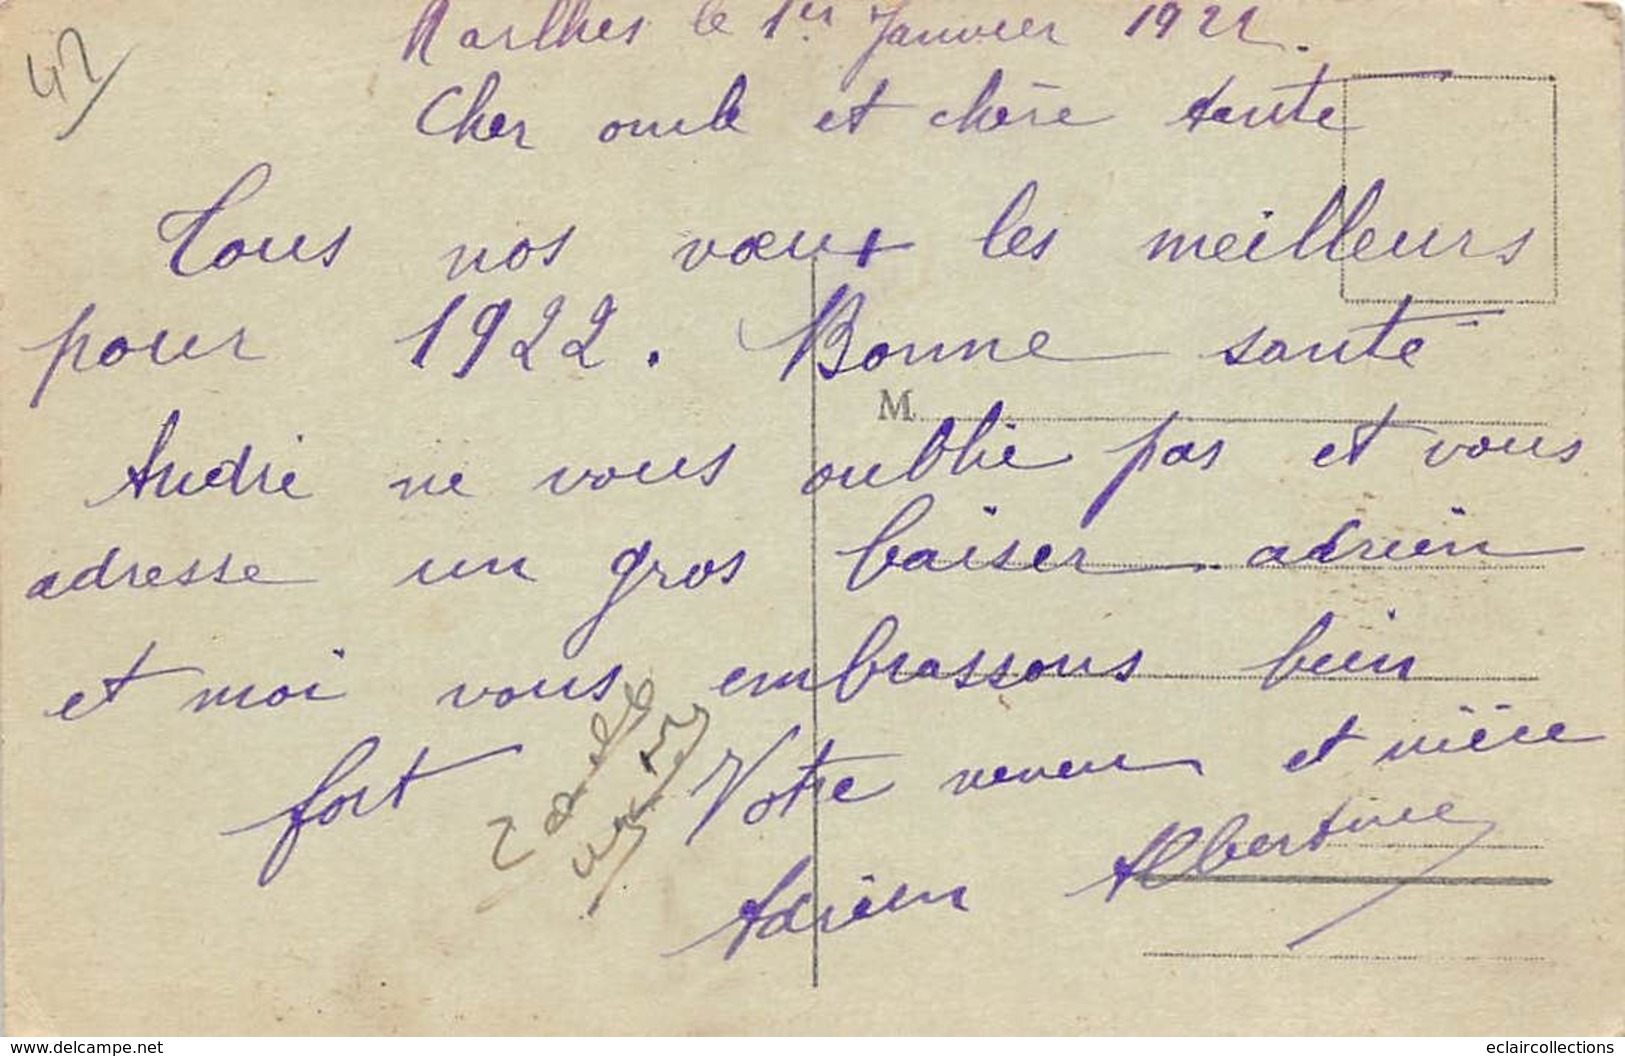 42
Marlhes le 1er Janvier 1922.
Cher oncle et chère tante
Tous nos vœux les meilleurs
pour 1922. Bonne santé
M
André ne vous oublie pas et vous
adresse un gros baiser adrien
et moi vous embrassons bien
fort Votre neveu et nièce
Adrien Albertine
www.delcampe.net
eclaircollections